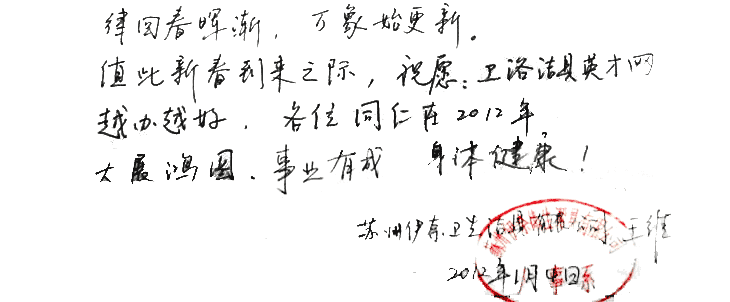 律回春晖渐，万象始更新。
值此新春到来之际，祝愿：卫浴洁具英才网
越办越好，各位同仁在2012年
大展鸿图、事业有成 身体健康！
苏州伊奈卫生洁具有限公司 王维
2012年1月4日
人事系